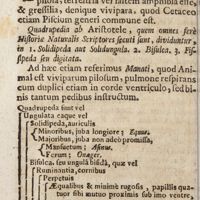 pilosa, terrestria vel saltem amphibia esse,
& gressilia, denique vivipara, quod Cetaceo
etiam Piscium generi commune est.
Quadrupeda ab Aristotele, quem omnes ferè
Historiæ Naturalis Scriptores secuti sunt, dividuntur
in 1. Solidipeda aut Solidungula. 2. Bisulca. 3. Fis-
sipeda seu digitata.
Ad hæc etiam referimus Manati, quod Ani-
mal est viviparum pilosum, pulmone respirans
cum duplici etiam in corde ventriculo, binis sal-
tem pedibus instructum.
Quadrupeda sunt vel
Ungulata eaque vel
Solidipeda, auriculis
Minoribus, juba longiore; Equus.
Majoribus, juba non adeò promissa,
Mansuetum; Asinus.
Ferum; Onager.
Bisulca, seu ungulâ bifidâ, quæ vel
Ruminantia, cornibus
Perpetuis
Æqualibus & minimè rugosis, papillis quatuor sibi mutuo proximis sub imo ventre,